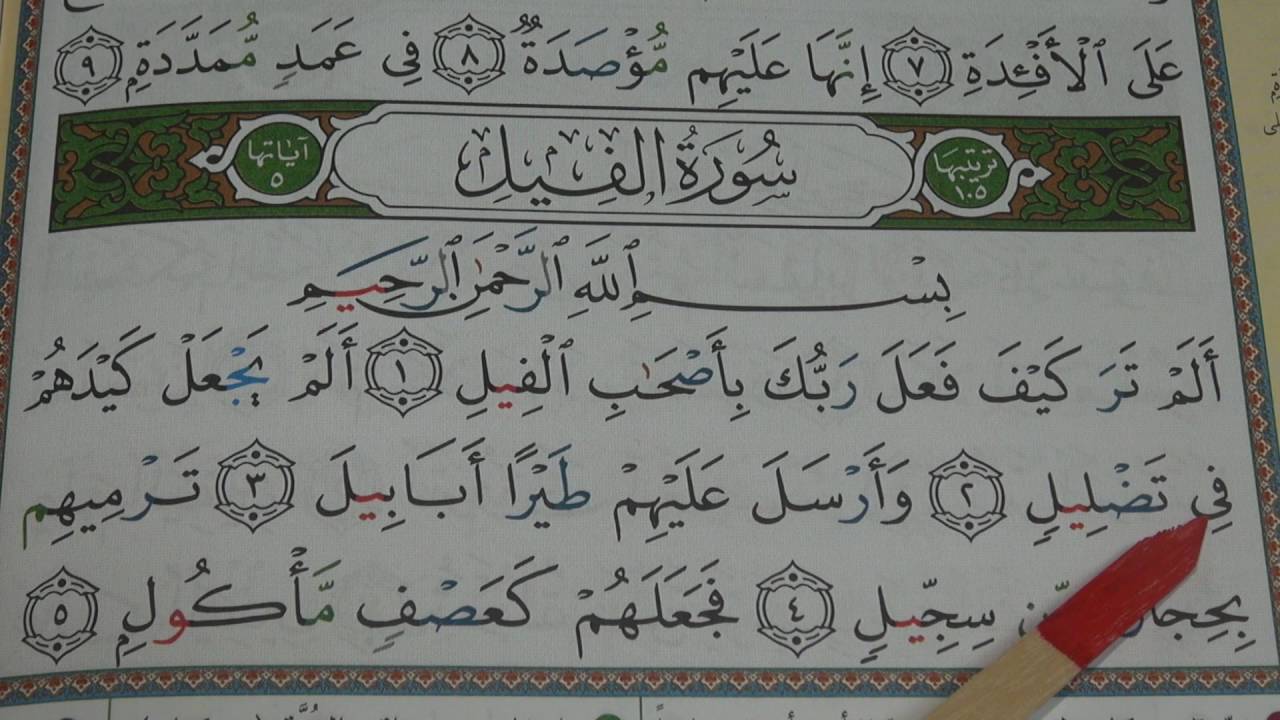 عَلَى ٱلْأَفْـِٔدَةِ ٧ إِنَّهَا عَلَيْهِم مُّؤْصَدَةٌ ٨ فِى عَمَدٍ مُّمَدَّدَةٍۭ ٩
ترتيبها ١٠٥ سُورَةُ الفِيلِ آياتها ٥
بِسْمِ ٱللَّهِ ٱلرَّحْمَٰنِ ٱلرَّحِيمِ
أَلَمْ تَرَ كَيْفَ فَعَلَ رَبُّكَ بِأَصْحَٰبِ ٱلْفِيلِ ١ أَلَمْ يَجْعَلْ كَيْدَهُمْ
فِى تَضْلِيلٍ ٢ وَأَرْسَلَ عَلَيْهِمْ طَيْرًا أَبَابِيلَ ٣ تَرْمِيهِم
مِّن سِجِّيلٍ ٤ فَجَعَلَهُمْ كَعَصْفٍ مَّأْكُولٍۭ ٥